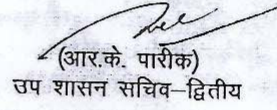 (आर.के. पारीक)
उप शासन सचिव-द्वितीय